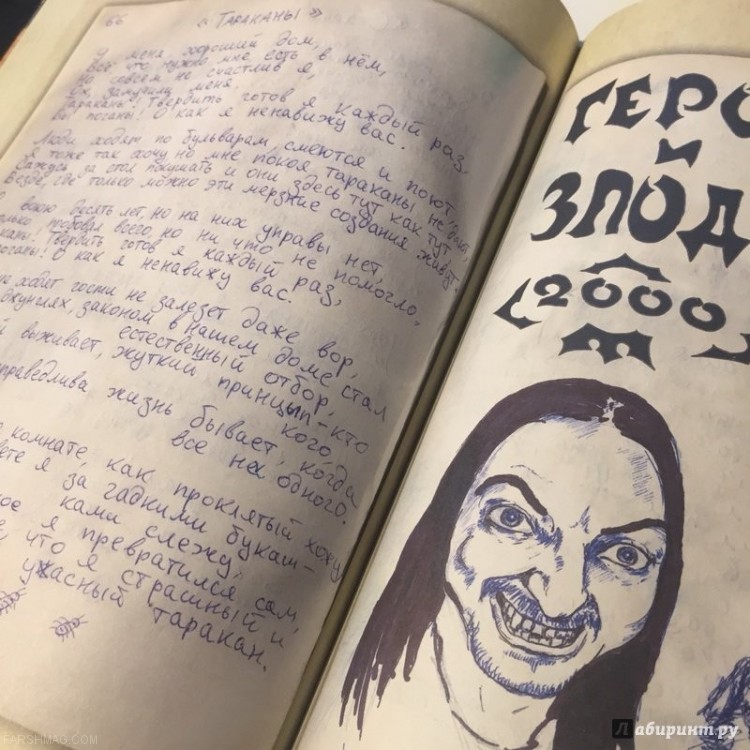 66
« ТАРАКАНЫ »
У меня хороший дом,
Всё что нужно мне есть в нём,
Но совсем не счастлив я,
Ох, замучили меня.
Тараканы! Твердить готов я каждый раз,
Вы поганы! О как я ненавижу вас.
Люди ходят по бульварам, смеются и поют,
Я тоже так хочу но мне покоя тараканы не дают,
Сажусь за стол покушать и они здесь тут как тут,
Везде, где только можно эти мерзкие создания живут.
воюю десять лет, но на них управы нет,
пробовал всего, но ни что не помогло,
Твердить готов я каждый раз,
поганы! О как я ненавижу вас.
ходят гости не залезет даже вор,
джунглях, законом в нашем доме стал
естественный отбор,
выживает, жуткий принцып - кто
кого,
жизнь бывает, когда
все на одного.
комнате, как проклятый хожу,
я за гадкими букаш-
ками слежу,
я превратился сам,
что я страшный и
ужасный таракан.
ГЕРО
И
ЗЛОД
2000
Лабиринт.ру
FARSHMAG.COM